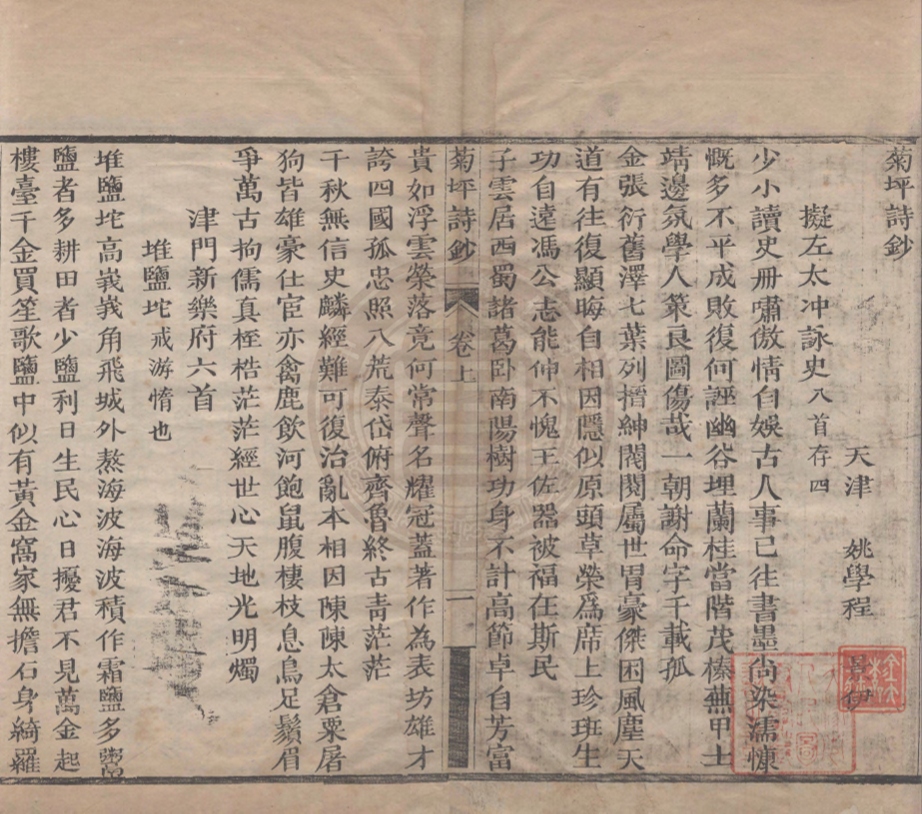 菊坪詩鈔
天津 姚學程 伊
擬左太冲詠史八首存四
少小讀史册嘯傲情自娛古人事已往書墨尚染濡慷
慨多不平成敗復何誣幽谷埋蘭桂當階茂榛蕪甲士
靖邊氛學人策良圖傷哉一朝謝命字千載孤
金張衍舊澤七葉列搢紳閥閱屬世胄豪傑困風塵天
道有往復顯晦自相因隱似原頭草榮爲席上珍班生
功自遠馮公志能伸不愧王佐器被福在斯民
子雲居西蜀諸葛卧南陽樹功身不計高節卓自芳富
菊坪詩鈔 卷上 一
貴如浮雲榮落竟何常聲名耀冠蓋著作為表坊雄才
誇四國孤忠照八荒泰岱俯齊魯終古青茫茫
千秋無信史麟經難可復治亂本相因陳陳太倉粟屠
狗皆雄豪仕宦亦禽鹿飲河飽鼠腹棲枝息鳥足鬚眉
爭萬古拘儒真桎梏茫茫經世心天地光明燭
津門新樂府六首
堆鹽坨戒游惰也
堆鹽坨高峩峩角飛城外熬海波海波積作霜鹽多鬻
鹽者多耕田者少鹽利日生民心日擾君不見萬金起
樓臺千金買笙歌鹽中似有黃金窩家無擔石身綺羅